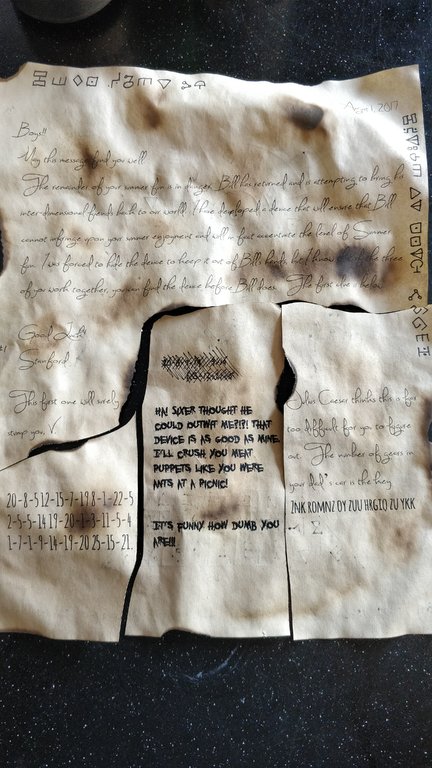 April, 2017
Boys!!
May this message find you well.
The remainder of your summer fun is in danger. Bill has returned and is attempting to bring his
inter-dimensional fiends back to our world. I have developed a device that will ensure that Bill
cannot infringe upon your summer enjoyment and will in fact accentuate the level of Summer
fun. I was forced to hide the device to keep it out of Bill's hands, but I know if the three
of you work together, you can find the device before Bill does. The first clue is below.
Good Luck!
Stanford
#1
This first one will surely
stump you.
20-8-5 12-15-7-19 8-1-22-5
2-5-5-14 19-20-1-3-11-5-4
1-7-1-9-14-19-20 25-15-21.
HA! SIXER THOUGHT HE
COULD OUTWIT ME?!?! THAT
DEVICE IS AS GOOD AS MINE.
I'LL CRUSH YOU MEAT
PUPPETS LIKE YOU WERE
ANTS AT A PICNIC!
IT'S FUNNY HOW DUMB YOU
ARE!!!
Julius Caesar thinks this is far
too difficult for you to figure
out. The number of gears in
your dad's car is the key.
ZNK ROMNZ OY ZUU HRGIQ ZU YKK